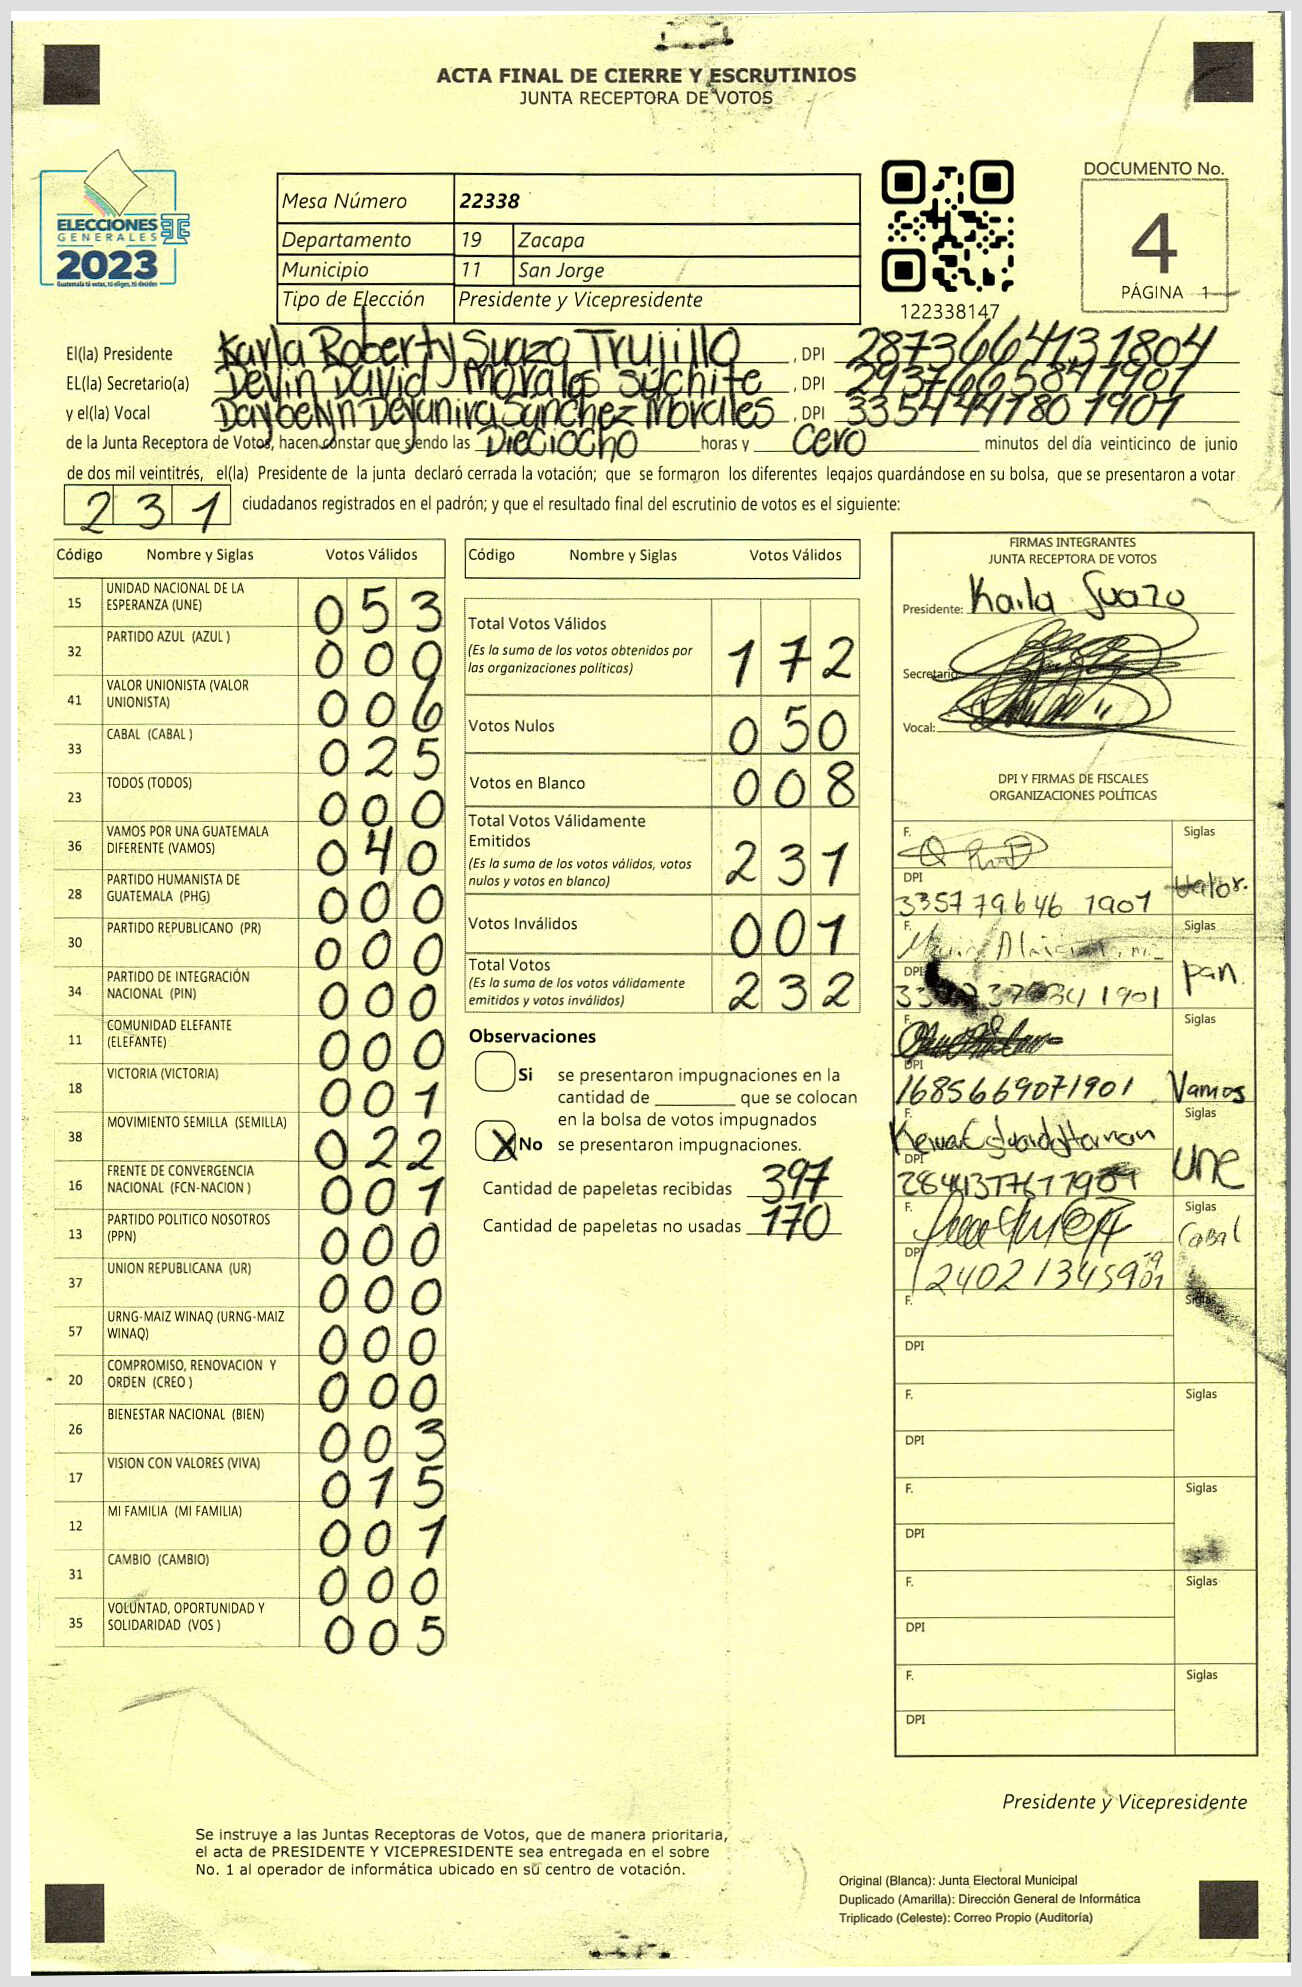 ACTA FINAL DE CIERRE Y ESCRUTINIOS
JUNTA RECEPTORA DE VOTOS
ELECCIONES
GENERALES
2023
Guatemala tú votas, tú eliges, tú decides
Mesa Número 22338
Departamento 19 Zacapa
Municipio 11 San Jorge
Tipo de Elección Presidente y Vicepresidente
122338147
DOCUMENTO No.
4
PÁGINA 1
El(la) Presidente Karla Roberty Suaza Trujillo, DPI 2873664131804
EL(la) Secretario(a) Devlin David Morales Suchite, DPI 2937665841901
y el(la) Vocal Daybelyn Deyanira Sanchez Morales, DPI 3354441801901
de la Junta Receptora de Votos, hacen constar que siendo las Dieciocho horas y Cero minutos del día veinticinco de junio
de dos mil veintitrés, el(la) Presidente de la junta declaró cerrada la votación; que se formaron los diferentes legajos guardándose en su bolsa, que se presentaron a votar
231 ciudadanos registrados en el padrón; y que el resultado final del escrutinio de votos es el siguiente:
Código Nombre y Siglas Votos Válidos
15 UNIDAD NACIONAL DE LA ESPERANZA (UNE) 053
32 PARTIDO AZUL (AZUL ) 000
41 VALOR UNIONISTA (VALOR UNIONISTA) 006
33 CABAL (CABAL ) 025
23 TODOS (TODOS) 000
36 VAMOS POR UNA GUATEMALA DIFERENTE (VAMOS) 040
28 PARTIDO HUMANISTA DE GUATEMALA (PHG) 000
30 PARTIDO REPUBLICANO (PR) 000
34 PARTIDO DE INTEGRACIÓN NACIONAL (PIN) 000
11 COMUNIDAD ELEFANTE (ELEFANTE) 000
18 VICTORIA (VICTORIA) 001
38 MOVIMIENTO SEMILLA (SEMILLA) 022
16 FRENTE DE CONVERGENCIA NACIONAL (FCN-NACION ) 001
13 PARTIDO POLITICO NOSOTROS (PPN) 000
37 UNION REPUBLICANA (UR) 000
57 URNG-MAIZ WINAQ (URNG-MAIZ WINAQ) 000
20 COMPROMISO, RENOVACION Y ORDEN (CREO ) 000
26 BIENESTAR NACIONAL (BIEN) 003
17 VISION CON VALORES (VIVA) 015
12 MI FAMILIA (MI FAMILIA) 001
31 CAMBIO (CAMBIO) 000
35 VOLUNTAD, OPORTUNIDAD Y SOLIDARIDAD (VOS ) 005
Código Nombre y Siglas Votos Válidos
Total Votos Válidos 172
(Es la suma de los votos obtenidos por
las organizaciones políticas)
Votos Nulos 050
Votos en Blanco 008
Total Votos Válidamente
Emitidos 231
(Es la suma de los votos válidos, votos
nulos y votos en blanco)
Votos Inválidos 001
Total Votos 232
(Es la suma de los votos válidamente
emitidos y votos inválidos)
Observaciones
Si se presentaron impugnaciones en la
cantidad de ________ que se colocan
en la bolsa de votos impugnados
X No se presentaron impugnaciones.
Cantidad de papeletas recibidas 397
Cantidad de papeletas no usadas 170
FIRMAS INTEGRANTES
JUNTA RECEPTORA DE VOTOS
Presidente: Karla Suazo
Secretario:
Vocal:
DPI Y FIRMAS DE FISCALES
ORGANIZACIONES POLÍTICAS
F. Siglas
DPI Valor.
3357796461901
F. Siglas
DPI pan
F. Siglas
DPI
1685669071901 Vamos
F. Siglas
DPI UNE
F. Siglas
Cabal
DPI
F. Siglas
DPI
F. Siglas
DPI
F. Siglas
DPI
F. Siglas
DPI
F. Siglas
DPI
Presidente y Vicepresidente
Se instruye a las Juntas Receptoras de Votos, que de manera prioritaria,
el acta de PRESIDENTE Y VICEPRESIDENTE sea entregada en el sobre
No. 1 al operador de informática ubicado en su centro de votación.
Original (Blanca): Junta Electoral Municipal
Duplicado (Amarilla): Dirección General de Informática
Triplicado (Celeste): Correo Propio (Auditoría)